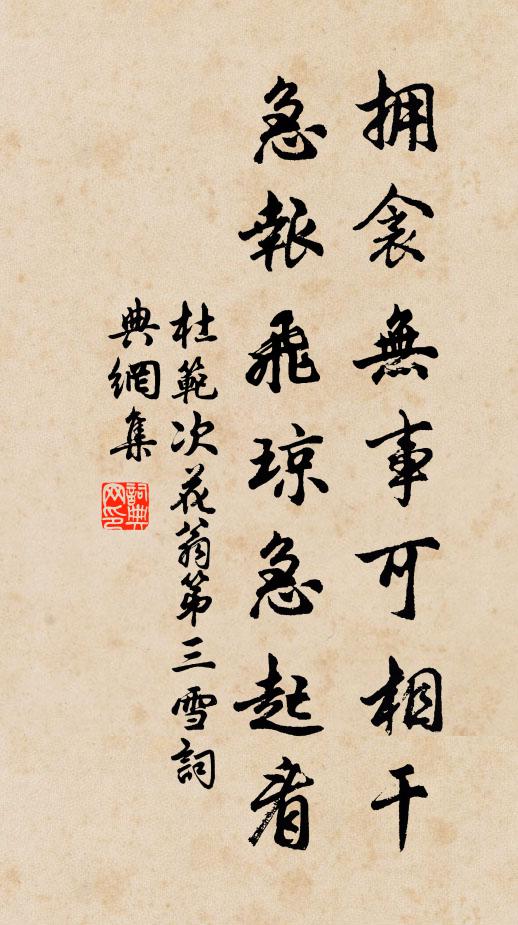 拥衾無事可相干
急報飛琼急起看
杜範次花翁第三雪詞
典網集
詞典
网印